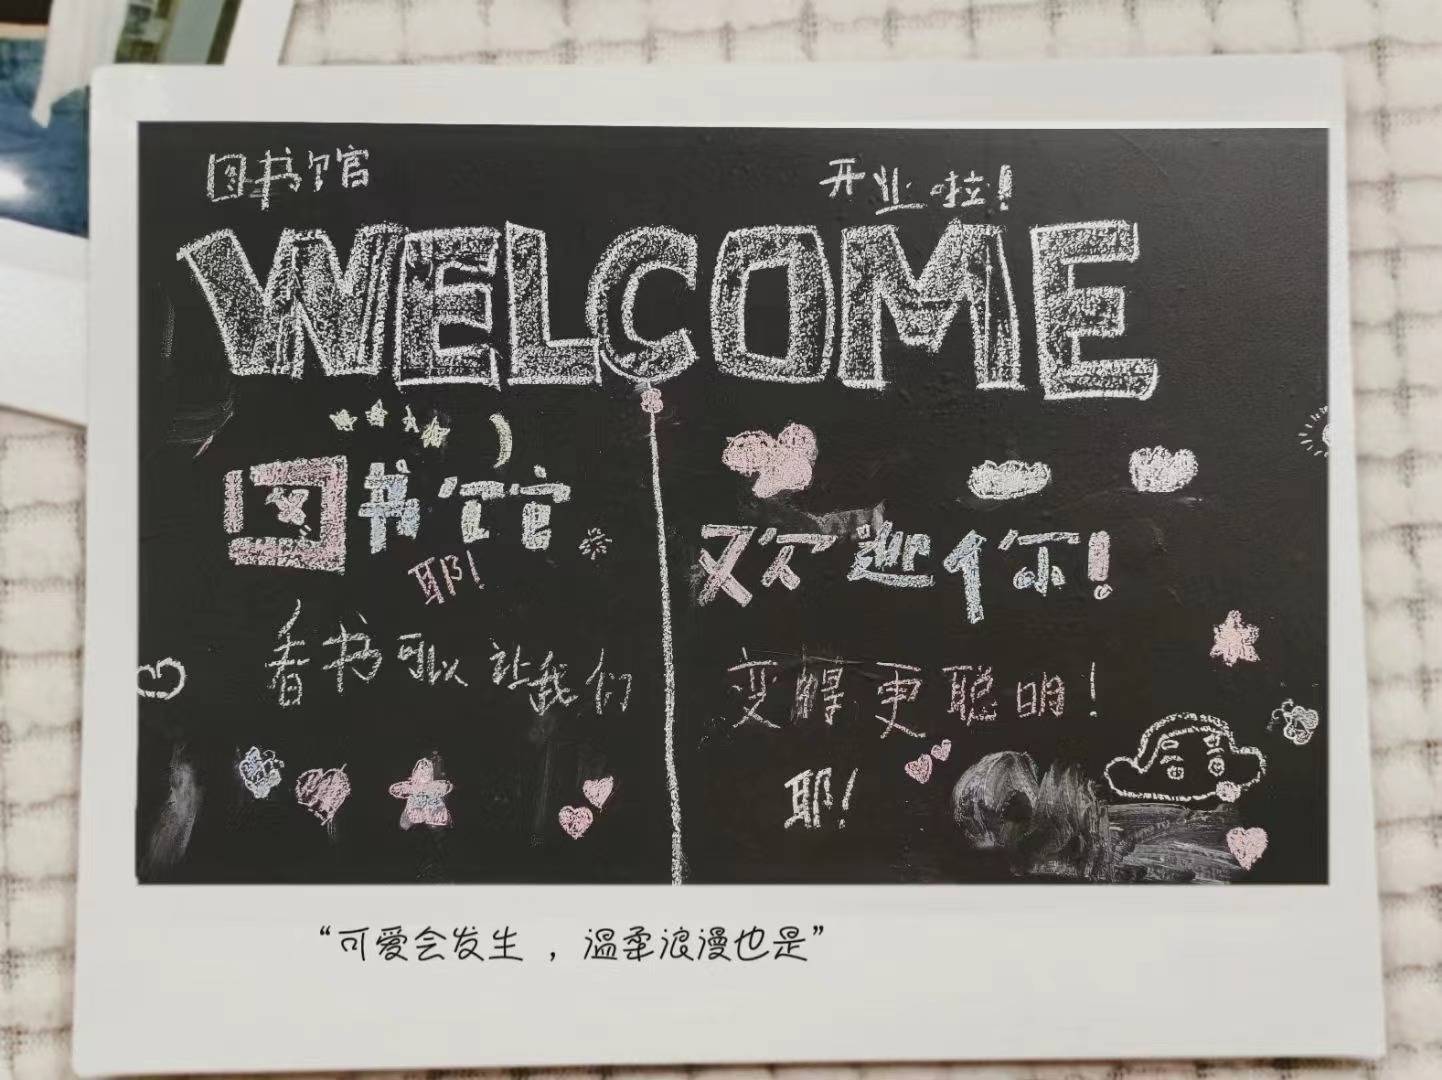 图书馆 开业啦!
WELCOME
图书馆
耶!
欢迎你!
看书可以让我们
变得更聪明!
耶!
“可爱会发生，温柔浪漫也是”